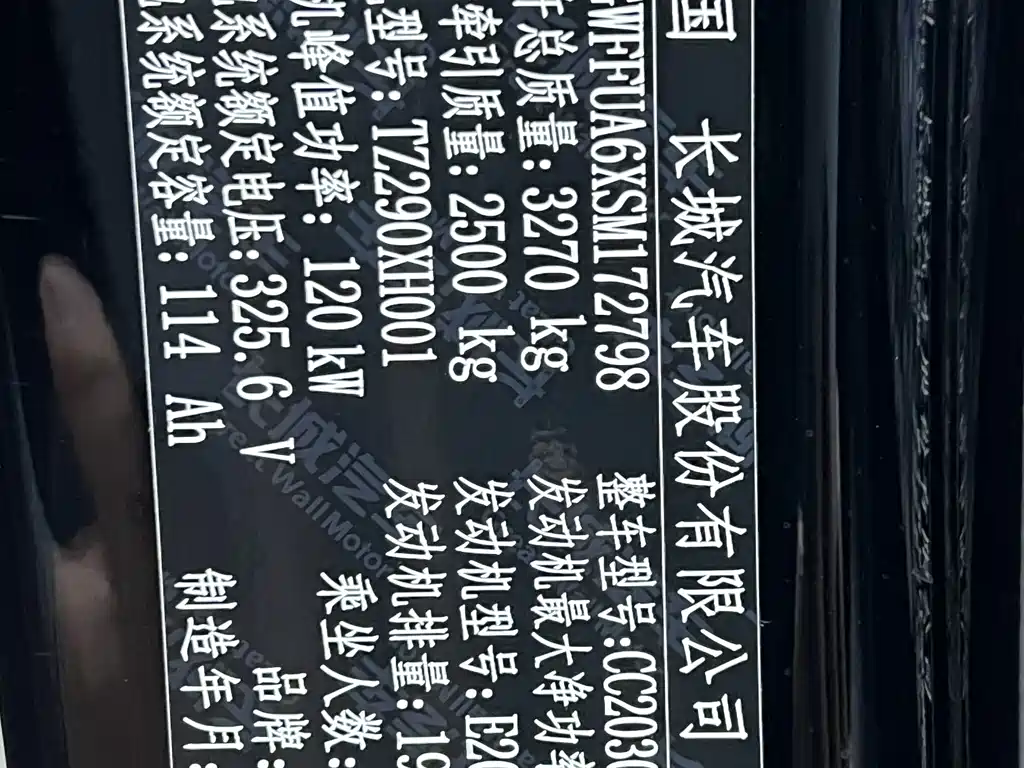 国 长城汽车股份有限公司
WFFUA6XSM172798 整车型号:CC2030
总质量: 3270 kg 发动机最大净功率
牵引质量: 2500 kg 发动机型号: E20
型号: TZ290XH001 发动机排量: 19
机峰值功率: 120 kW 乘坐人数:
系统额定电压: 325.6 V 品牌:
系统额定容量: 114 Ah 制造年月: